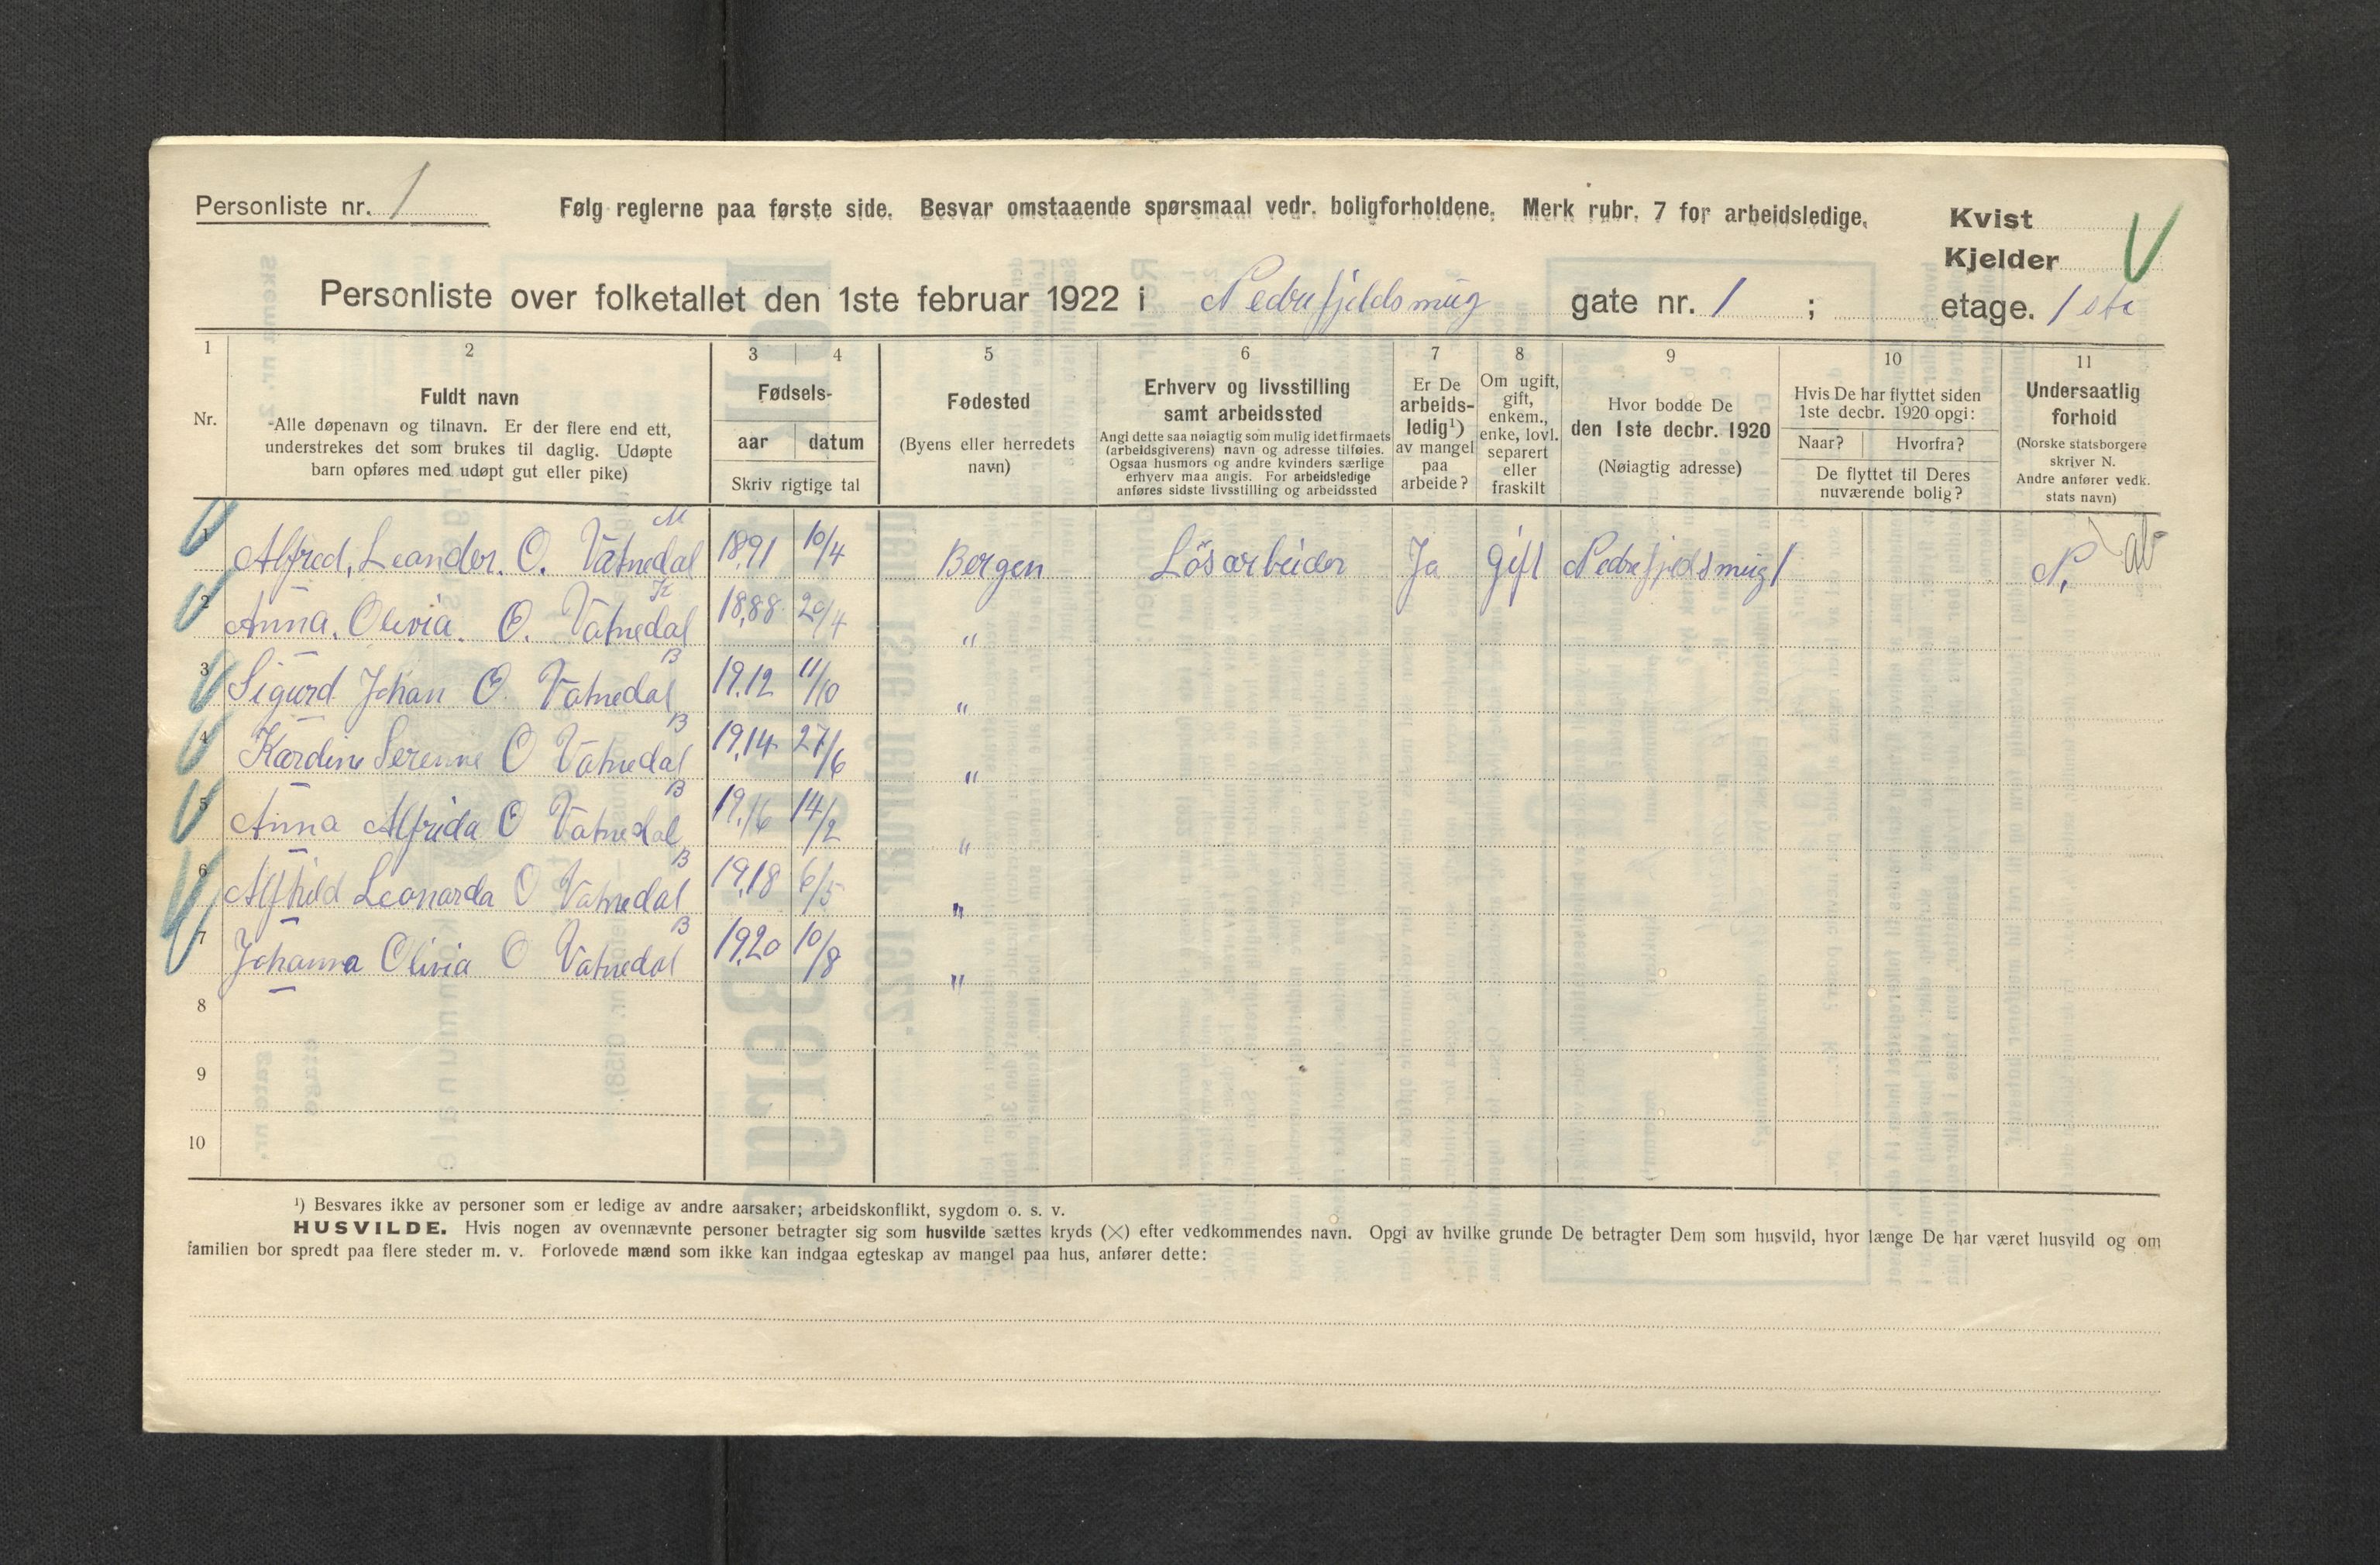 Personliste nr. 1 Følg reglerne paa første side. Besvar omstaaende spørsmaal vedr. boligforholdene. Merk rubr. 7 for arbeidsledige. Kvist
Kjelder
Personliste over folketallet den 1ste februar 1922 i Nedrefjeldsmug gate nr. 1 ; etage. 1ste
1 2 3 4 5 6 7 8 9 10 11
Nr.
Fuldt navn
Alle døpenavn og tilnavn. Er der flere end ett,
understrekes det som brukes til daglig. Udøpte
barn opføres med udøpt gut eller pike)
Fødsels-
aar datum
Skriv rigtige tal
Fødested
(Byens eller herredets
navn)
Erhverv og livsstilling
samt arbeidssted
Angi dette saa nøiagtig som mulig idet firmaets
(arbeidsgiverens) navn og adresse tilføies.
Ogsaa husmors og andre kvinders særlige
erhverv maa angis. For arbeidsledige
anføres sidste livsstilling og arbeidssted
Er De
arbeids-
ledig¹)
av mangel
paa
arbeide?
Om ugift,
gift,
enkem.,
enke, lovl.
separert
eller
fraskilt
Hvor bodde De
den 1ste decbr. 1920
(Nøiagtig adresse)
Hvis De har flyttet siden
1ste decbr. 1920 opgi:
Naar? Hvorfra?
De flyttet til Deres
nuværende bolig?
Undersaatlig
forhold
(Norske statsborgere
skriver N.
Andre anfører vedk.
stats navn)
M
1 Alfred, Leander. O. Vatnedal 1891 10/4 Bergen Lösarbeider Ja gift Nedrefjeldsmug 1 N.
2 Anna. Olivia. O. Vatnedal 1888 20/4 "
B
3 Sigurd Johan O. Vatnedal 1912 11/10 "
B
4 Kardine Serenne O Vatnedal 1914 27/6 "
B
5 Anna Alfrida O Vatnedal 1916 14/2 "
B
6 Alfhild Leonarda O Vatnedal 1918 6/5 "
B
7 Johanna Olivia O Vatnedal 1920 10/8 "
8
9
10
¹) Besvares ikke av personer som er ledige av andre aarsaker; arbeidskonflikt, sygdom o. s. v.
HUSVILDE. Hvis nogen av ovennævnte personer betragter sig som husvilde sættes kryds (×) efter vedkommendes navn. Opgi av hvilke grunde De betragter Dem som husvild, hvor længe De har været husvild og om
familien bor spredt paa flere steder m. v. Forlovede mænd som ikke kan indgaa egteskap av mangel paa hus, anfører dette: